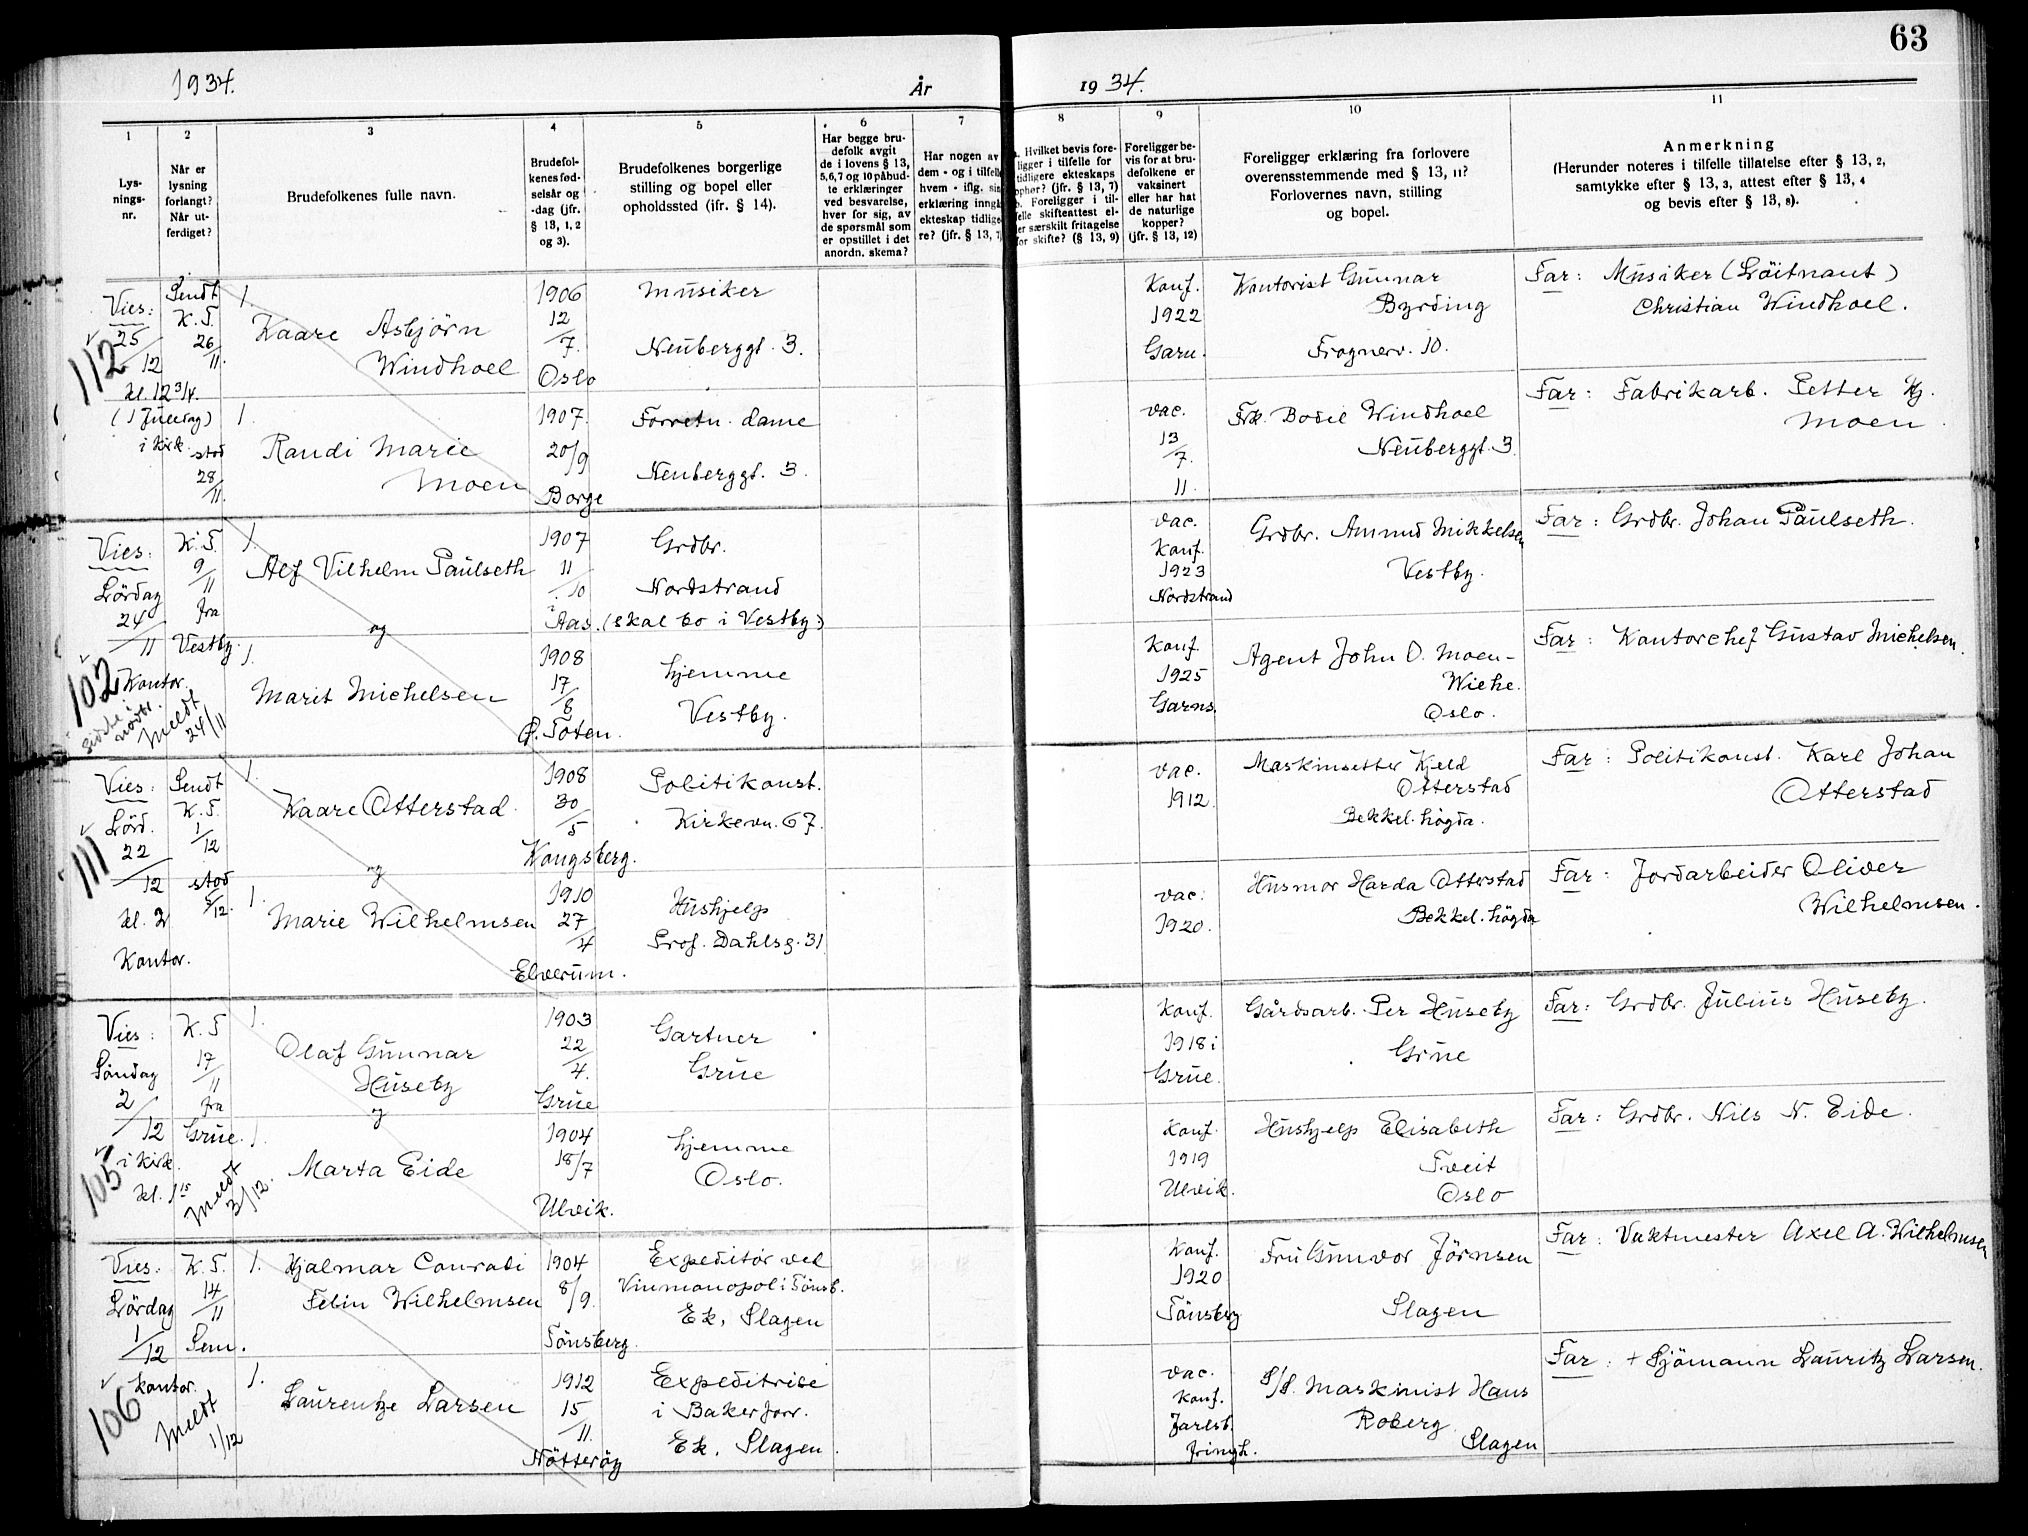 63
1934.
År
1934.
1
2
3
4
5
6
7
8
9
10
11
Lys-
nings-
nr.
Når er
lysning
forlangt?
Når ut-
ferdiget?
Brudefolkenes fulle navn.
Brudefol-
kenes fød-
selsår og
-dag (jfr.
§ 13, 1, 2
og 3).
Brudefolkenes borgerlige
stilling og bopel eller
opholdssted (ifr. § 14).
Har begge bru-
defolk avgit
de i lovens § 13,
5,6,7 og 10 påbud-
te erklæringer
ved besvarelse,
hver for sig, av
de spørsmål som
er opstillet i det
anordn. skema?
Har nogen av
dem - og i tilfelle
hvem - iflg. sin
erklæring inngå
ekteskap tidlige-
re? (jfr. § 13, 7)
a. Hvilket bevis fore-
ligger i tilfelle for
tidligere ekteskaps
ophør? (jfr. § 13, 7)
b. Foreligger i til-
felle skifteattest el-
ler særskilt fritagelse
for skifte? (§ 13, 9)
Foreligger be-
vis for at bru-
defolkene er
vaksinert
eller har hat
de naturlige
kopper?
(jfr. § 13, 12)
Foreligger erklæring fra forlovere
overensstemmende med § 13, 11?
Forlovernes navn, stilling
og bopel.
Anmerkning
(Herunder noteres i tilfelle tillatelse efter § 13, 2,
samtykke efter § 13, 3, attest efter § 13, 4
og bevis efter § 13, 8).
Vies:
25/12
112
kl. 12 3/4.
(1 Juledag)
i kirk.
Sendt
K.T.
26/11.
stod
28/11.
1.
Kaare Asbjörn
Windhoel
1906
12/7.
Oslo
Musiker
Neuberggt. 3.
Konf.
1922
Garn.
Kontorist Gunnar
Byrding
Frognerv. 10.
Far: Musiker (Löitnant)
Christian Windhoel.
1.
Randi Marie
Moen
1907.
20/9
Borge
Forretn. dame
Neuberggt. 3.
vac.
13/7.
11.
Frk. Bodil Windhoel
Neuberggt. 3.
Far: Fabrikarb. Petter Kj.
Moen.
Vies:
Lördag
24/11
102
Kontor.
K.T.
9/11
fra
Vestby.
Meldt
24/11
1.
Alf Vilhelm Paulseth
og
1907
11/10
i Aas.
Grdbr.
Nordstrand
(skal bo i Vestby)
vac.
Konf.
1923
Nordstrand
Grdbr. Amund Mikkelsen
Vestby.
Far: Grdbr. Johan Paulseth.
1.
Marit Michelsen
1908
17/8
Ø. Toten.
hjemme
Vestby.
Konf.
1925
Garns.
Agent John O. Moen-
Wiehe.
Oslo.
Far: Kontorchef Gustav Michelsen.
Vies:
Lörd.
22/12
111
kl. 2
Kontor.
Sendt
K.T.
1/12
stod
5/12.
1.
Kaare Otterstad.
og
1908
30/5
Kongsberg.
Politikonst.
Kirkevn. 67.
vac.
1912.
Maskinsetter Kjeld
Otterstad
Bekkel. högda.
Far: Politikonst. Karl Johan
Otterstad
1.
Marie Wilhelmsen
1910
27/4
Elverum.
Hushjelp
Prof. Dahlsg. 31
vac.
1920.
Husmor Harda Otterstad
Bekkel. högda
Far: Jordarbeider Oliver
Wilhelmsen.
Vies:
Söndag
2/12
105
i kirk.
kl. 1 15
K.T
17/11
fra
Grue.
Meldt
3/12.
1.
Olaf Gunnar
Huseby
og
1903
22/4.
Grue
Gartner
Grue
Konf.
1918 i
Grue.
Gårdsarb. Per Huseby
Grue
Far: Grdbr. Julius Huseby.
1.
Marta Eide
1904
18/7
Ulvik.
hjemme
Oslo.
Konf.
1919
Ulvik.
Hushjelp Elisabeth
Tveit
Oslo
Far: Grdbr. Nils N. Eide.
Vies:
Lördag
1/12
106
Kontor.
K.T.
14/11
Sem.
Meldt
1/12
1.
Hjalmar Conradi
Felin Wilhelmsen
1904
8/9.
Tönsberg.
Expeditör ved
Vinmonopol i Tönsb.
Ek, Slagen
Konf.
1920
Tönsberg
Fru Gunvor Jörnsen
Slagen
Far: Vaktmester Axel A. Wilhelmsen
1.
Laurentze Larsen
1912
15/11.
Nötteröy
Expeditrise
i Baker forr.
Ek, Slagen.
vac.
Konf.
Jarlsb.
fringh.
S/S. Maskinist Hans
Roberg
Slagen
Far: + Sjömann Lauritz Larsen.